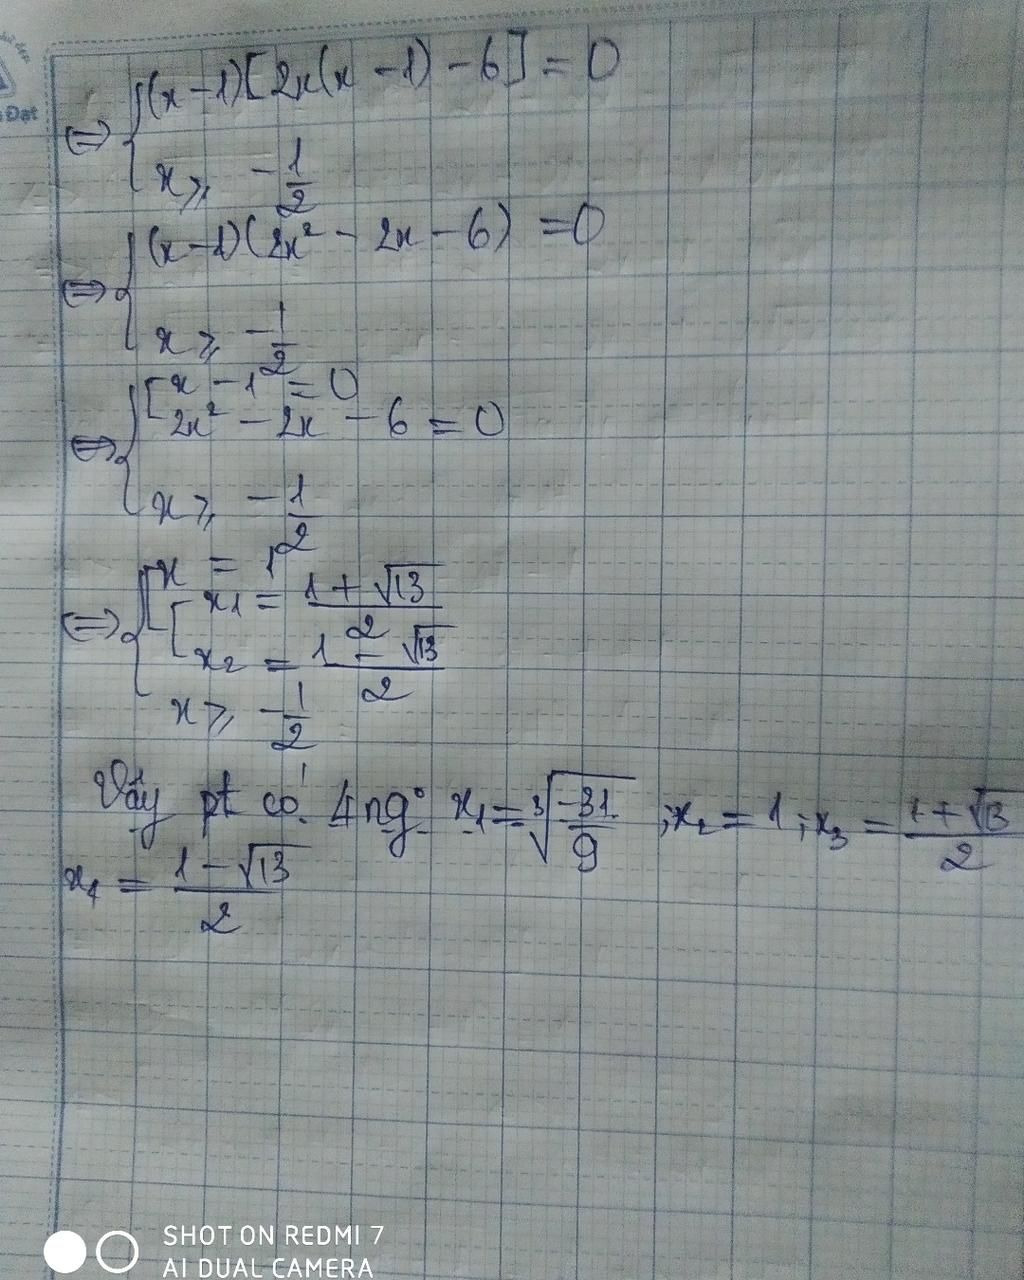 Đạt
(x-1)[2x(x-1)-6] = 0
⇔ {
x ≥ -1/2
(x-1)(2x² - 2x - 6) = 0
⇔ {
x ≥ -1/2
[x - 1 = 0
2x² - 2x - 6 = 0
⇔ {
x ≥ -1/2
[x = 1
⇔ { [x₁ = (1 + √13)/2
x₂ = (1 - √13)/2
x ≥ -1/2
Vây pt có 4 ng° x₁ = ∛(-31/9) ; x₂ = 1 ; x₃ = (1 + √13)/2
x₄ = (1 - √13)/2
SHOT ON REDMI 7
AI DUAL CAMERA